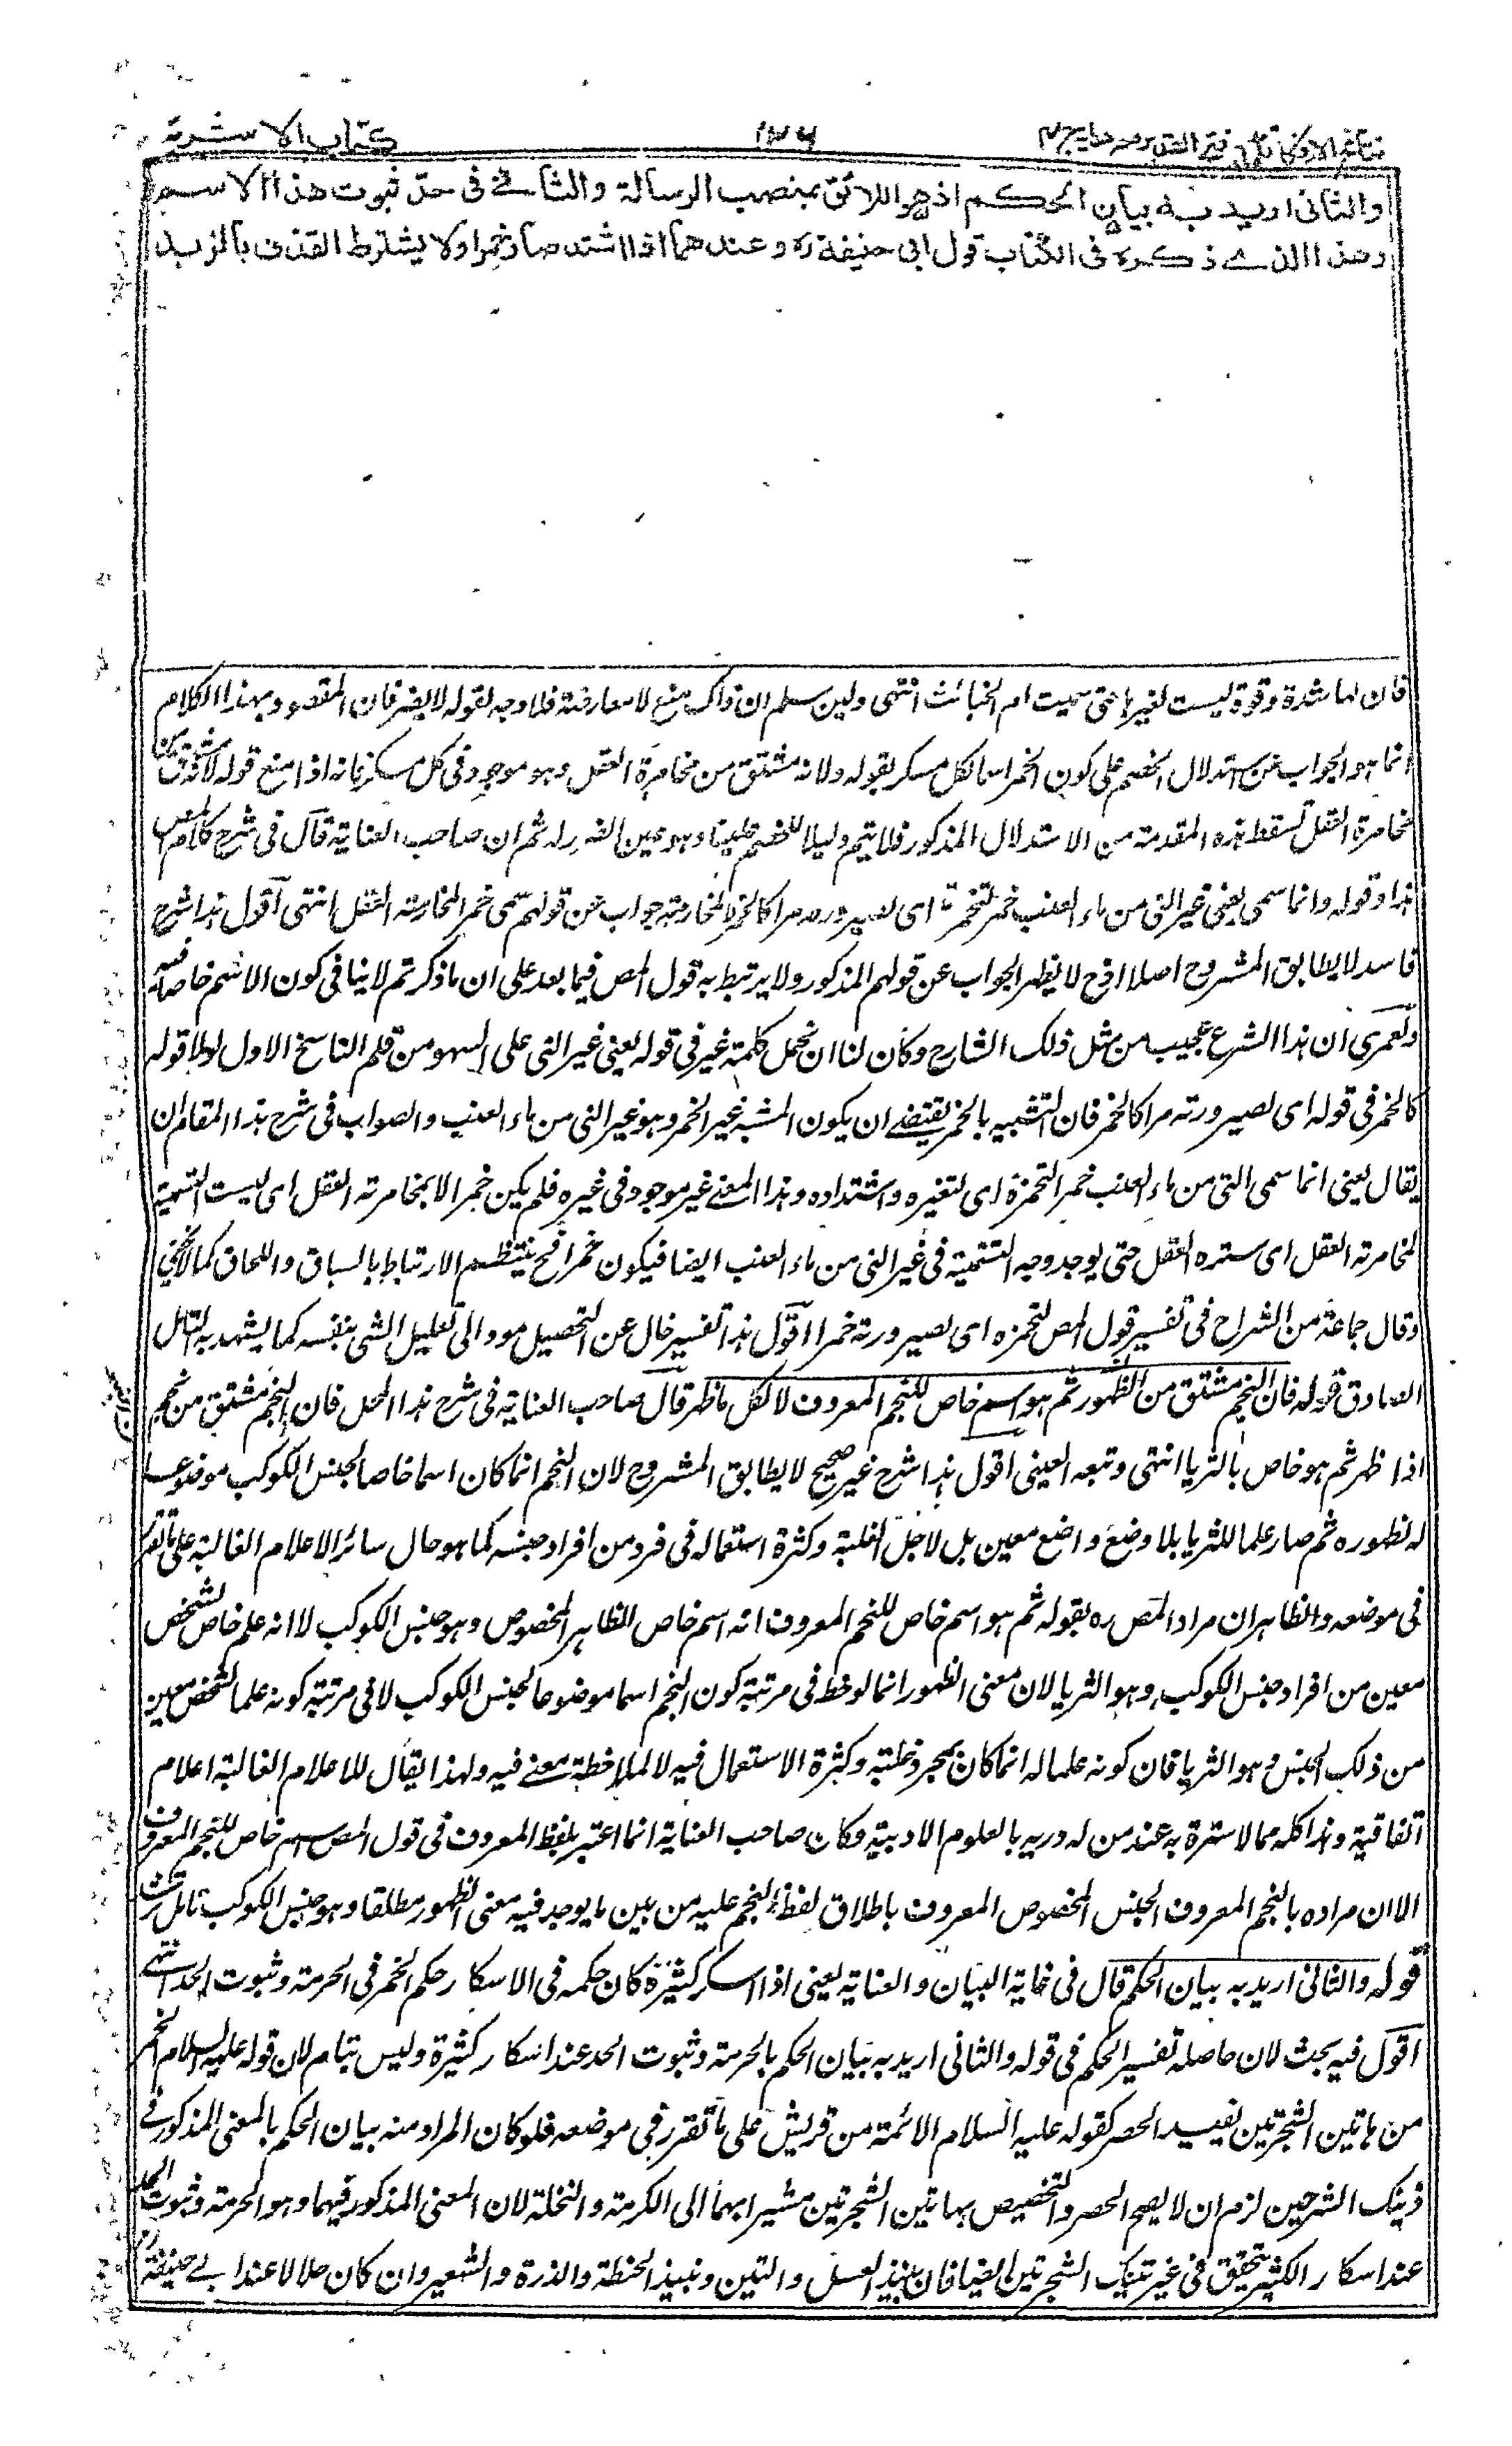 نتائج الافكار تكملة فتح القدير مع هدايه ج ٤
١٢٦
كتاب الاشربة
والثانى اريد به بيان الحكم اذ هو اللائق بمنصب الرسالة والثانے فى حق ثبوت هذا الاسم
وهذا الذے ذكره فى الكتاب قول ابى حنيفة ره وعندهما اذا اشتد صار خمرا ولا يشترط القذف بالزبد
فان لها شدة وقوة ليست لغيرها حتى سميت ام الخبائث انتهى ولئن سلم ان ذاك منع لا معارضة فلا وجه لقوله لا يضر فان المقصود بهذا الكلام
انما هو الجواب عن استدلال الخصم على كون الخمر اسما لكل مسكر بقوله ولانه مشتق من مخامرة العقل وهو موجود فى كل مسكر فانه اذا منع قوله لانه مشتق من
مخامرة العقل تسقط هذه المقدمة من الاستدلال المذكور فلا يتم دليلا للخصم علينا وهو عين الضرر له ثم ان صاحب العناية قال فى شرح كلام المص
هذا وقوله وانما سمى يعنى غير النى من ماء العنب خمرا لتخمره اى لصيرورته مرا كالخمر لا لمخامرته جواب عن قولهم سمى خمرا لمخامرته العقل انتهى اقول هذا شرح
فاسد لا يطابق المشروح اصلا اذ ح لا يظهر الجواب عن قولهم المذكور ولا يرتبط به قول المص فيما بعد على ان ما ذكرتم لا ينافى كون الاسم خاصا فيه
ولعمرى ان هذا الشرح عجيب من مثل ذلك الشارح وكان لنا ان نحمل كلمة غير فى قوله يعنى غير النى على السهو من قلم الناسخ الاول لولا قوله
كالخمر فى قوله اى لصيرورته مرا كالخمر فان التشبيه بالخمر يقتضے ان يكون المشبه غير الخمر وهو غير النى من ماء العنب والصواب فى شرح هذا المقام ان
يقال يعنى انما سمى النى من ماء العنب خمرا لتخمره اى لتغيره واشتداده وهذا المعنے غير موجود فى غيره فلم يكن خمرا لا بمخامرته العقل اى ليست التسمية
لمخامرته العقل اى ستره العقل حتى يوجد وجه التسمية فى غير النى من ماء العنب ايضا فيكون خمرا فح ينتظم الارتباط بالسباق واللحاق كما لا يخفى
وقال جماعة من الشراح فى تفسير قول المص لتخمره اى لصيرورته خمرا اقول هذا تفسير خال عن التحصيل مود الى تعليل الشى بنفسه كما يشهد به التامل
الصادق قوله فان النجم مشتق من الظهور ثم هو اسم خاص للنجم المعروف لا لكل ما ظهر قال صاحب العناية فى شرح هذا المحل فان النجم مشتق من نجم
اذا ظهر ثم هو خاص بالثريا انتهى وتبعه العينى اقول هذا شرح غير صحيح لا يطابق المشروح لان النجم انما كان اسما خاصا لجنس الكوكب موضوعا
له لظهوره ثم صار علما للثريا بلا وضع واضع معين بل لاجل الغلبة وكثرة استعماله فى فرد من افراد جنسه كما هو حال سائر الاعلام الغالبة على ما تقرر
فى موضعه والظاهر ان مراد المص ره بقوله ثم هو اسم خاص للنجم المعروف انه اسم خاص للظاهر المخصوص وهو جنس الكوكب لا انه علم خاص لشخص
معين من افراد جنس الكوكب وهو الثريا لان معنى الظهور انما لوحظ فى مرتبة كون النجم اسما موضوعا لجنس الكوكب لا فى مرتبة كونه علما لشخص معين
من ذلك الجنس وهو الثريا فان كونه علما له انما كان بمجرد غلبته وكثرة الاستعمال فيه لا لملاحظة معنے فيه ولهذا يقال للاعلام الغالبة اعلام
اتفاقية وهذا كله مما لا سترة به عند من له دربه بالعلوم الادبية وكان صاحب العناية انما اعتبر بلفظ المعروف فى قول المص اسم خاص للنجم المعروف
الا ان مراده بالنجم المعروف الجنس المخصوص المعروف باطلاق لفظ النجم عليه من بين ما يوجد فيه معنى الظهور مطلقا وهو جنس الكوكب تامل ترشد
قوله والثانى اريد به بيان الحكم قال فى غاية البيان والعناية يعنى اذا اسكر كثيره كان حكمه فى الاسكار حكم الخمر فى الحرمة وثبوت الحد انتهے
اقول فيه بحث لان حاصله تفسير الحكم فى قوله والثانى اريد به بيان الحكم بالحرمة وثبوت الحد عند اسكار كثيره وليس بتام لان قوله عليه السلام الخمر
من هاتين الشجرتين يفيد الحصر كقوله عليه السلام الائمة من قريش على ما تقرر فى موضعه فلو كان المراد منه بيان الحكم بالمعنى المذكور فى
ذينك الشرحين لزم ان لا يصح الحصر والتخصيص بهاتين الشجرتين مشيرا بهما الى الكرمة والنخلة لان المعنى المذكور فيهما وهو الحرمة وثبوت الحد
عند اسكار الكثير تحقق فى غير تينك الشجرتين ايضا فان نبيذ العسل والتين ونبيذ الحنطة والذرة والشعير وان كان حلالا عند ابے حنيفة ره